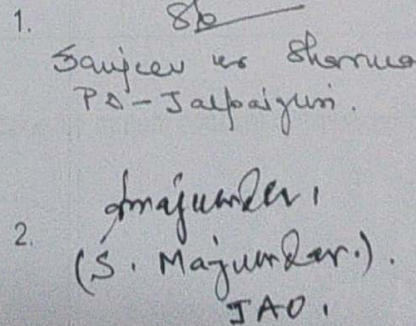 1. Sd/-
Sanjeev kr Sharma
PO-Jalpaiguri.
2. Smajumder,
(S. Majumder.).
JAO,